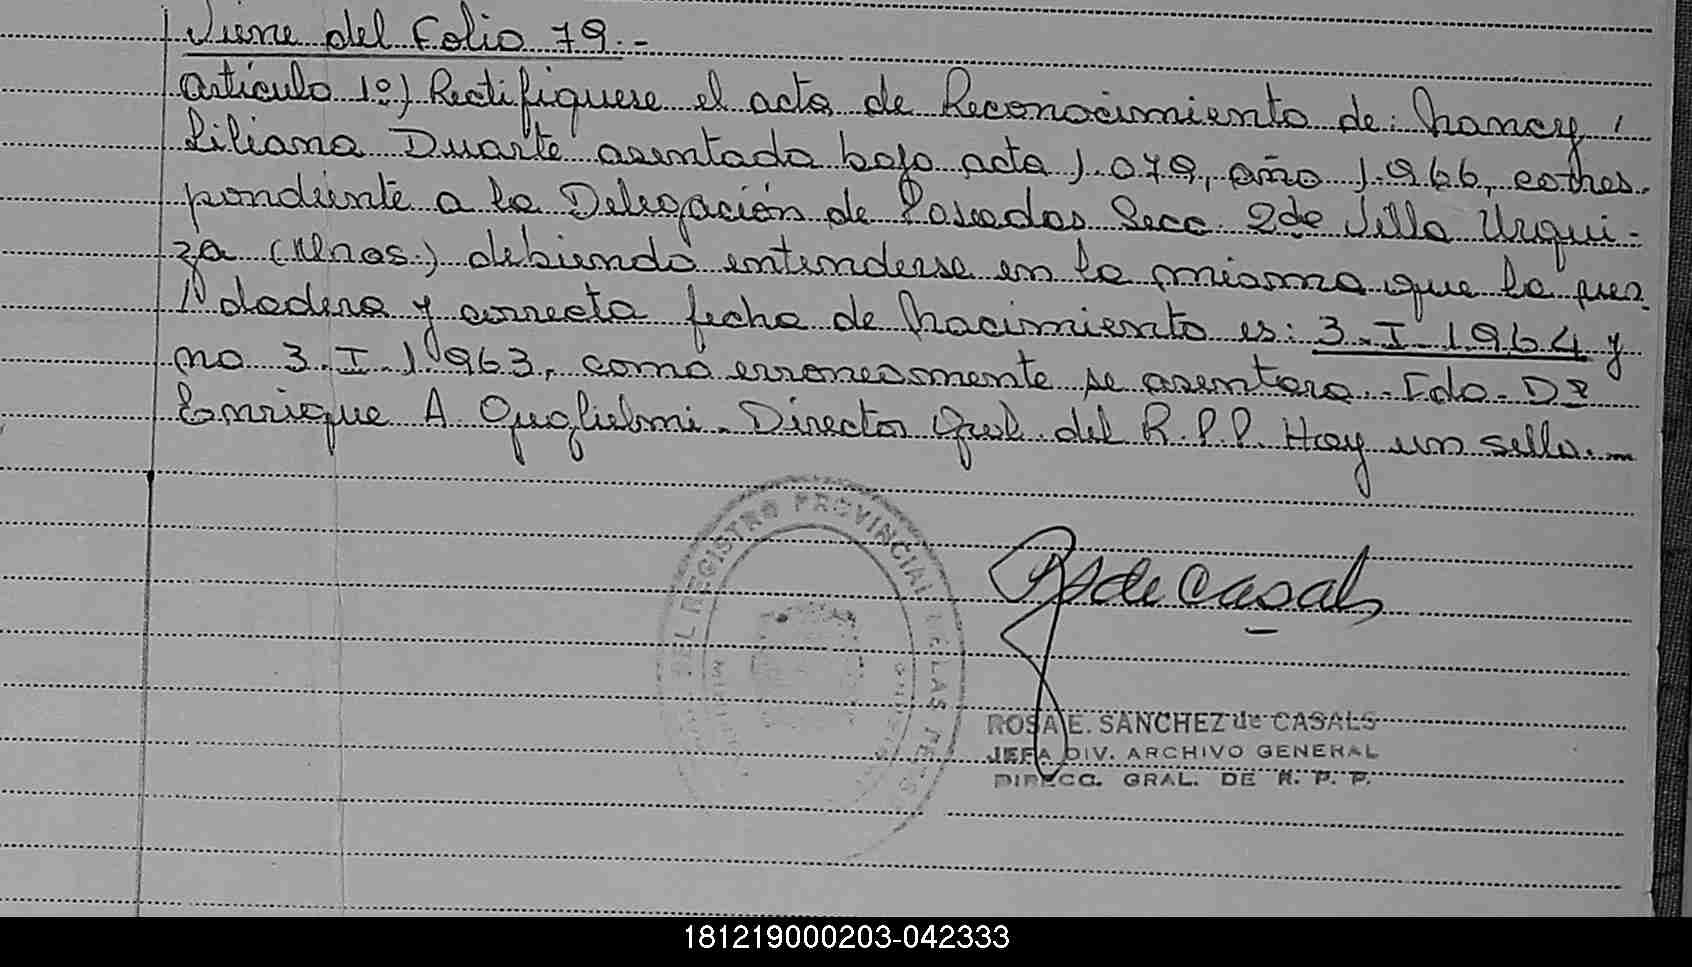 Viene del Folio 79.-
Artículo 1º) Rectifiquese el acta de Reconocimiento de: Nancy
Liliana Duarte asentada bajo acta 1.079, año 1.966, corres-
pondiente a la Delegación de Posadas Secc. 2da Villa Urqui-
za (Mnes.) debiendo entenderse en la misma que la ver-
dadera y correcta fecha de Nacimiento es: 3-I-1964 y
no 3-I-1963, como erroneamente se asentara.-Fdo-Dr
Enrique A. Guglielmi. Director Gral. del R.P.P. Hay un sello.-
DEL REGISTRO PROVINCIAL DE LAS PERS
RS de Casals
ROSA E. SANCHEZ de CASALS
JEFA DIV. ARCHIVO GENERAL
DIRECC. GRAL. DE R. P. P.
181219000203-042333